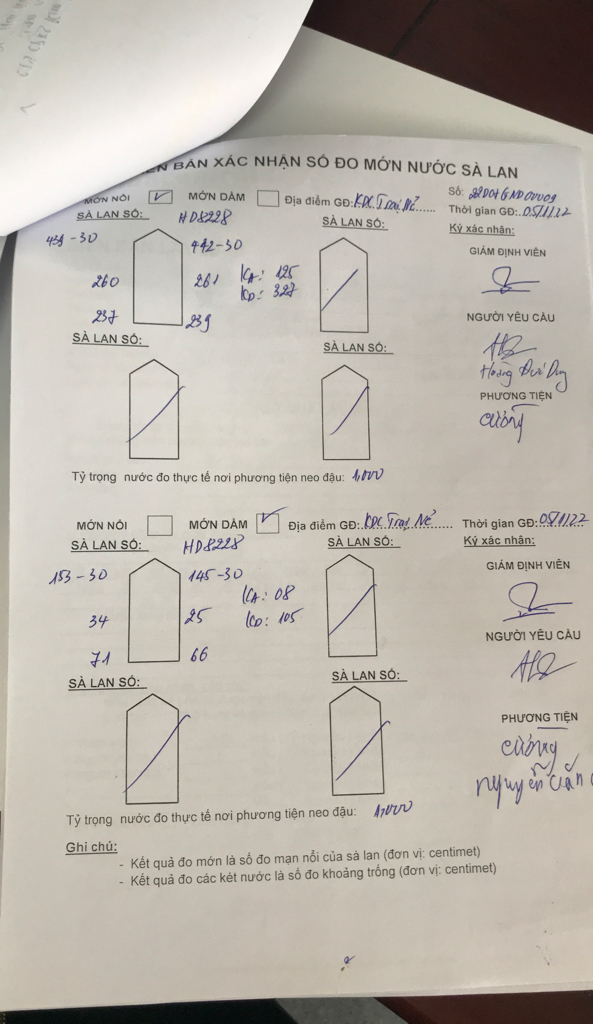 BẢN XÁC NHẬN SỐ ĐO MỚN NƯỚC SÀ LAN
MỚN NỔI ✓ MỚN DẦM Địa điểm GĐ: KDC Trại Nẻ Số:
SÀ LAN SỐ: HD8228 SÀ LAN SỐ: Thời gian GĐ: 05/11/22
Ký xác nhận:
439-30 442-30
GIÁM ĐỊNH VIÊN
260 261 KA: 125
KD: 327
237 239
NGƯỜI YÊU CẦU
SÀ LAN SỐ: SÀ LAN SỐ:
Hoàng Đức Duy
PHƯƠNG TIỆN
cường
Tỷ trọng nước đo thực tế nơi phương tiện neo đậu: 1,000
MỚN NỔI MỚN DẦM ✓ Địa điểm GĐ: KDC Trại Nẻ Thời gian GĐ: 05/11/22
SÀ LAN SỐ: HD8228 SÀ LAN SỐ: Ký xác nhận:
153-30 145-30
GIÁM ĐỊNH VIÊN
KA: 08
34 25 KD: 105
NGƯỜI YÊU CẦU
71 66
SÀ LAN SỐ: SÀ LAN SỐ:
PHƯƠNG TIỆN
cường
nguyễn văn
Tỷ trọng nước đo thực tế nơi phương tiện neo đậu: 1,000
Ghi chú:
- Kết quả đo mớn là số đo mạn nổi của sà lan (đơn vị: centimet)
- Kết quả đo các két nước là số đo khoảng trống (đơn vị: centimet)